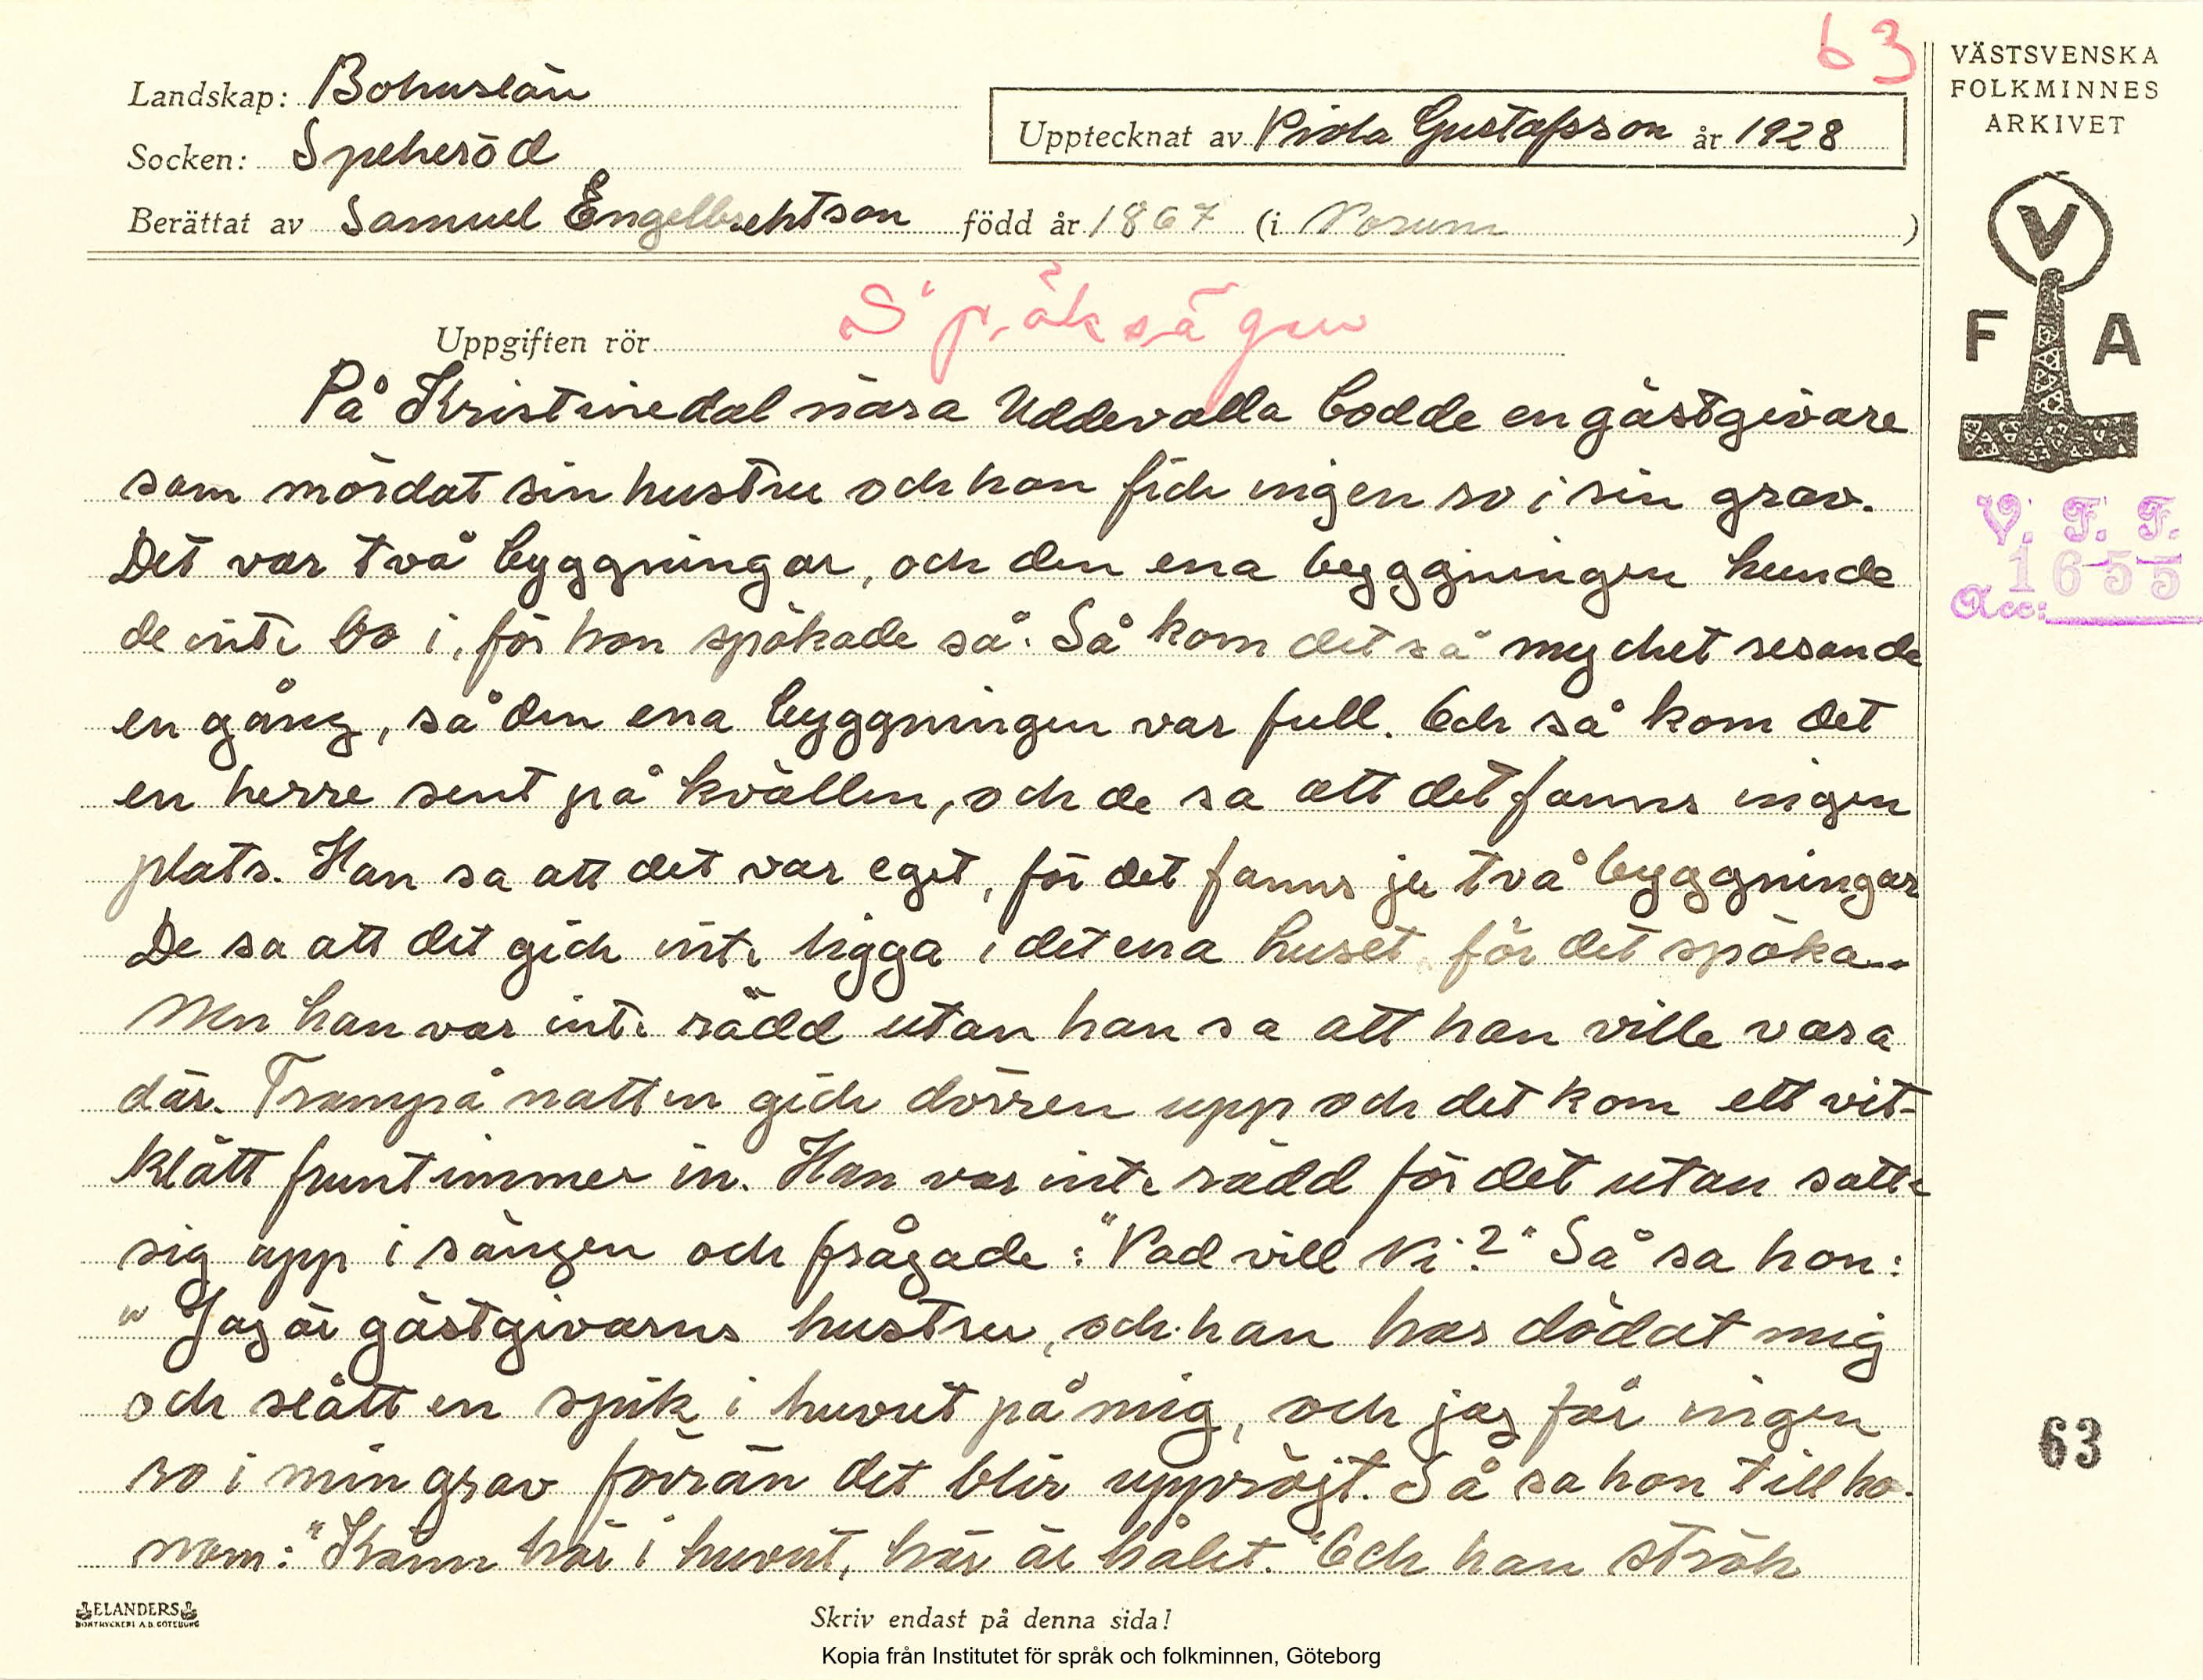 63
VÄSTSVENSKA
FOLKMINNES
ARKIVET
Landskap: Bohuslän
Upptecknat av Viola Gustafsson år 1928
Socken: Spekeröd
Berättat av Samuel Engelbrektson född år 1867 (i Norum)
V
F A
Uppgiften rör Spöksägen
På Kristinedal nära Uddevalla bodde en gästgivare
som mördat sin hustru och hon fick ingen ro i sin grav.
Det var två byggningar, och den ena byggningen kunde
de inte bo i, för hon spökade så. Så kom det så mycket resande
en gång, så den ena byggningen var full. Och så kom det
en herre sent på kvällen, och de sa att det fanns ingen
plats. Han sa att det var eget, för det fanns ju två byggningar
De sa att det gick inte ligga i det ena huset, för det spöka..
Men han var inte rädd utan han sa att han ville vara
där. Frampå natten gick dörren upp och det kom ett vit-
klätt fruntimmer in. Han var inte rädd för det utan satte
sig upp i sängen och frågade: "Vad vill Ni?" Så sa hon:
"Jag är gästgivarns hustru, och han har dödat mig
och slått en spik i huvut på mig, och jag får ingen
ro i min grav förrän det blir uppröjt. Så sa hon till ho-
nom: "Känn här i huvut, här är hålet." Och han strök
V. F. F.
1655
Acc:
63
ELANDERS
BOKTRYCKERI A.B. GÖTEBORG
Skriv endast på denna sida!
Kopia från Institutet för språk och folkminnen, Göteborg